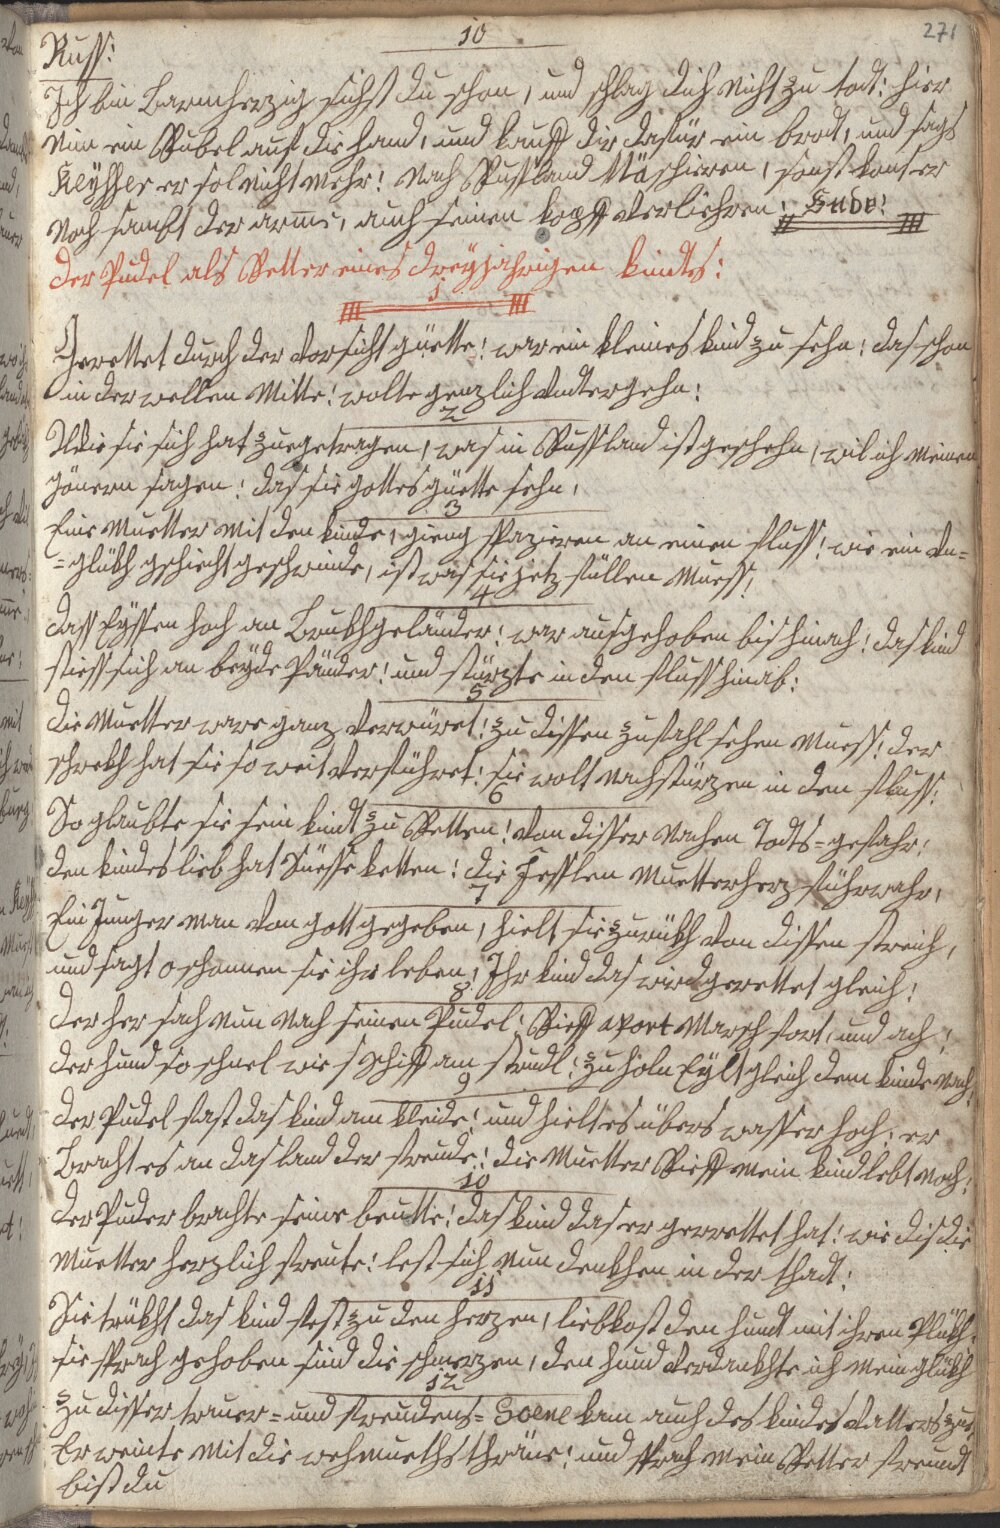 10
271
Russ:
Ich bin Barmherzig sichst du schon, und schlag dich nicht zu todt: hier
Nim ein Rubel auf die hand, und kauff dir dafür ein brodt, und sags
Keysser er sol nicht mehr! nach Russland Mäschieren, sonst kont er
Noch sambt der arme, auch seinen kopff verliehren: Ende!
Der Pudel als Retter eines dreyjährigen kindts:
1
Gerettet durch der vorsicht güette: war ein kleines kind zu sehn: das schon
in der wellen Mitte: wolte genzlich undtergehn:
2
Wie sie sich hat zuegetragen, was in Russland ist geschehn, wil ich meinen
gönnern sagen: das sie gottes güette sehn,
3
Eine Muetter mit den kinde, gieng spazieren an einen fluss! wie ein un=
=glükh gschicht geschwinde, ist was sie jetz füllen Muess!
4
Dass Eyssen hoch an Brukhgeländer: war aufgehoben bis hinach! das kind
stiess sich an beyde Pänder! und stürzte in den fluss hinab:
5
Die Muetter ware ganz verwüret! zu dissen zufahl sehen Muess! der
schrekh hat sie so weit verführet: sie wolt nachstürzen in den fluss:
6
So glaubte sie sein kindt zu Retten! von disser nachen Todts=gefahr:
den kindes lieb hat Süesse ketten: die Fesslen Muetterherz führwahr,
7
Ein Junger man von gott gegeben, hielt sie zurükh von dissen streich,
und sagt o schonnen sie ihr leben, Ihr kind das wird gerettet gleich!
8
Der her sach nun nach seinen Pudel: Rieff aport Marsch fort, und ach!
der hund so schnel wie s schiff am strudl: zu holn Eylt gleich dem kinde nach!
9
Der Pudel fast das kind am kleide! und hielt es übers wasser hoch: er
Bracht es an das land der freude: die Muetter Rieff mein kind lebt noch!
10
Der Puder brachte seine beutte! das kind das er gerrettet hat: wie dis die
Muetter herzlich freute: lest sich nun denkhen in der thadt:
11
Sie trükht das kind fest zu den herzen, liebkost den hundt mit ihren Plükh:
sie sprach gehoben sind die schmerzen, den hund verdankhte ich mein glükh
12
Zu disser trauer=und freudens=Scene kam auch des kindes vatters zue,
Er weinte mit die wehmueths thräne: und sprach mein Retter freundt
bist du